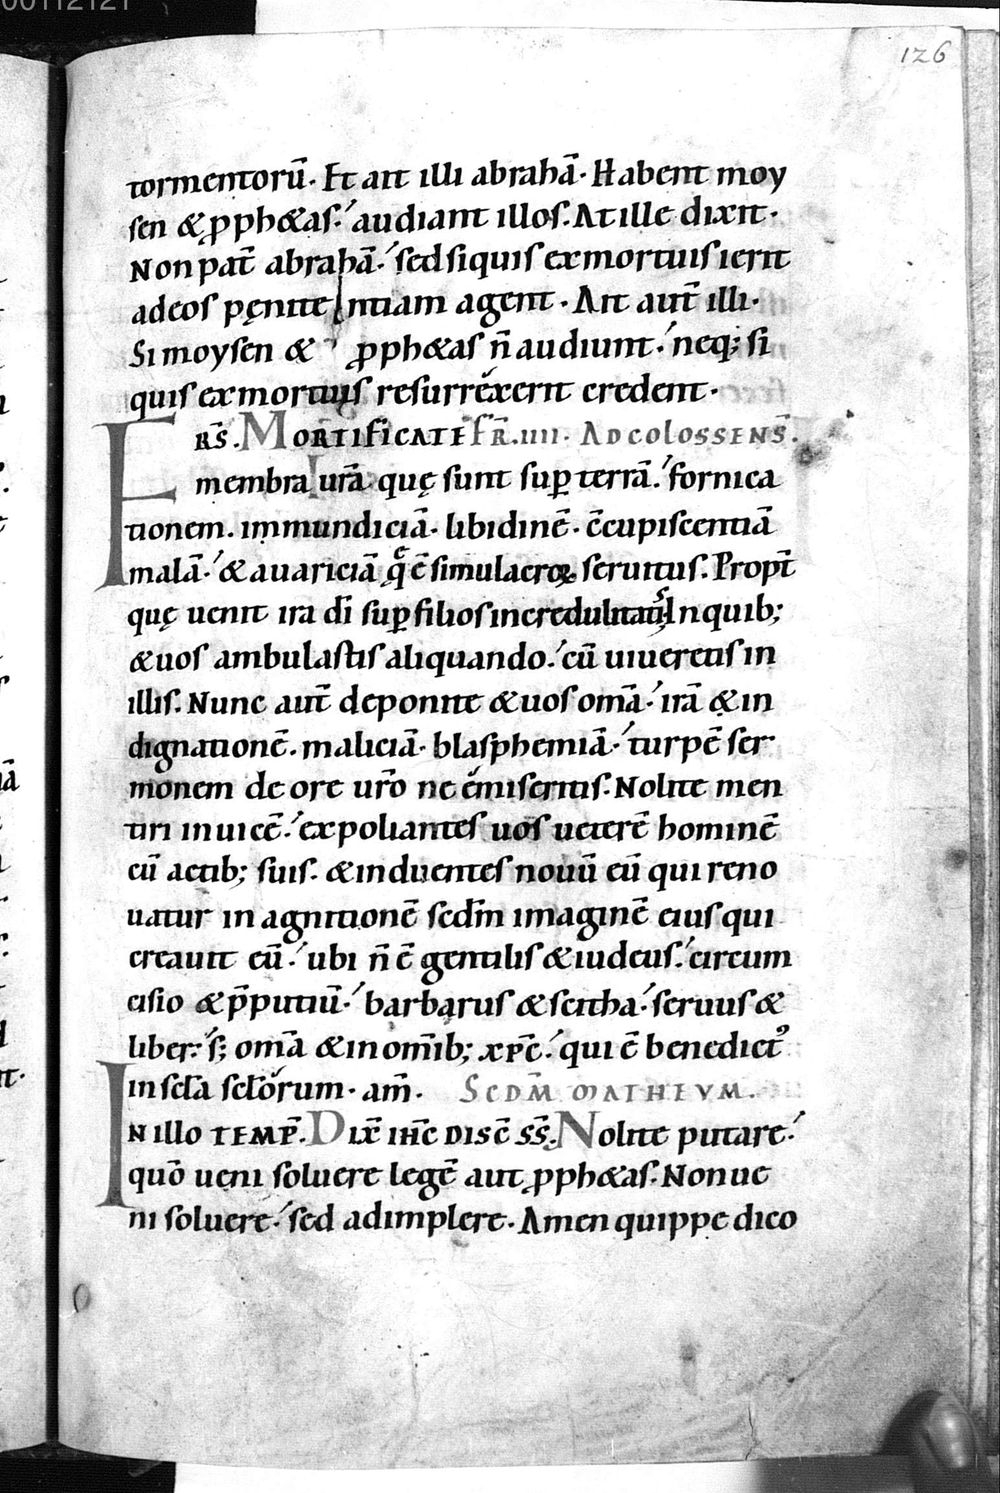 00112121
126
tormentorū. Et ait illi abrahā. Habent moy
sen & ꝓph&as. audiant illos. At ille dixit.
Non pat̄ abrahā. sed siquis ex mortuis ierit
ad eos pęnitentiam agent. Ait aut̄ illi.
Si moysen & ꝓph&as n̄ audiunt. neq; si
quis ex mortuis resurrexerit credent.
FR̄S. MORTIFICATE FR̄. IIII. AD COLOSSENS̄.
membra ur̄a quę sunt suꝑ terrā. fornica
tionem. immundiciā. libidinē. c̄cupiscentiā
malā. & auariciā q̄ ē simulacroꝝ seruitus. Propt̄
quę uenit ira dī suꝑ filios incredulitatis. In quib;
& uos ambulastis aliquando. cū uiueretis in
illis. Nunc aut̄ deponite & uos omā. irā & in
dignationē. maliciā. blasphemiā. turpē ser
monem de ore ur̄o ne emiseritis. Nolite men
tiri inuicē. expoliantes uos ueterē hominē
cū actib; suis. & induentes nouū eū qui reno
uatur in agnitionē scdm̄ imaginē eius qui
creauit eū. ubi n̄ ē gentilis & iudeus. circum
cisio & p̄putiū. barbarus & scitha. seruus &
liber. s; omā & in omīb; xp̄c. qui ē benedict᾿
in scl̄a scl̄orum. am̄. SCDM̄ MATHEVM.
IN illo TEMP̄. DIX̄ IHC̄ DISC̄ SS̄. Nolite putare
quō ueni soluere legē aut ꝓph&as. Non ue
ni soluere. sed adimplere. Amen quippe dico